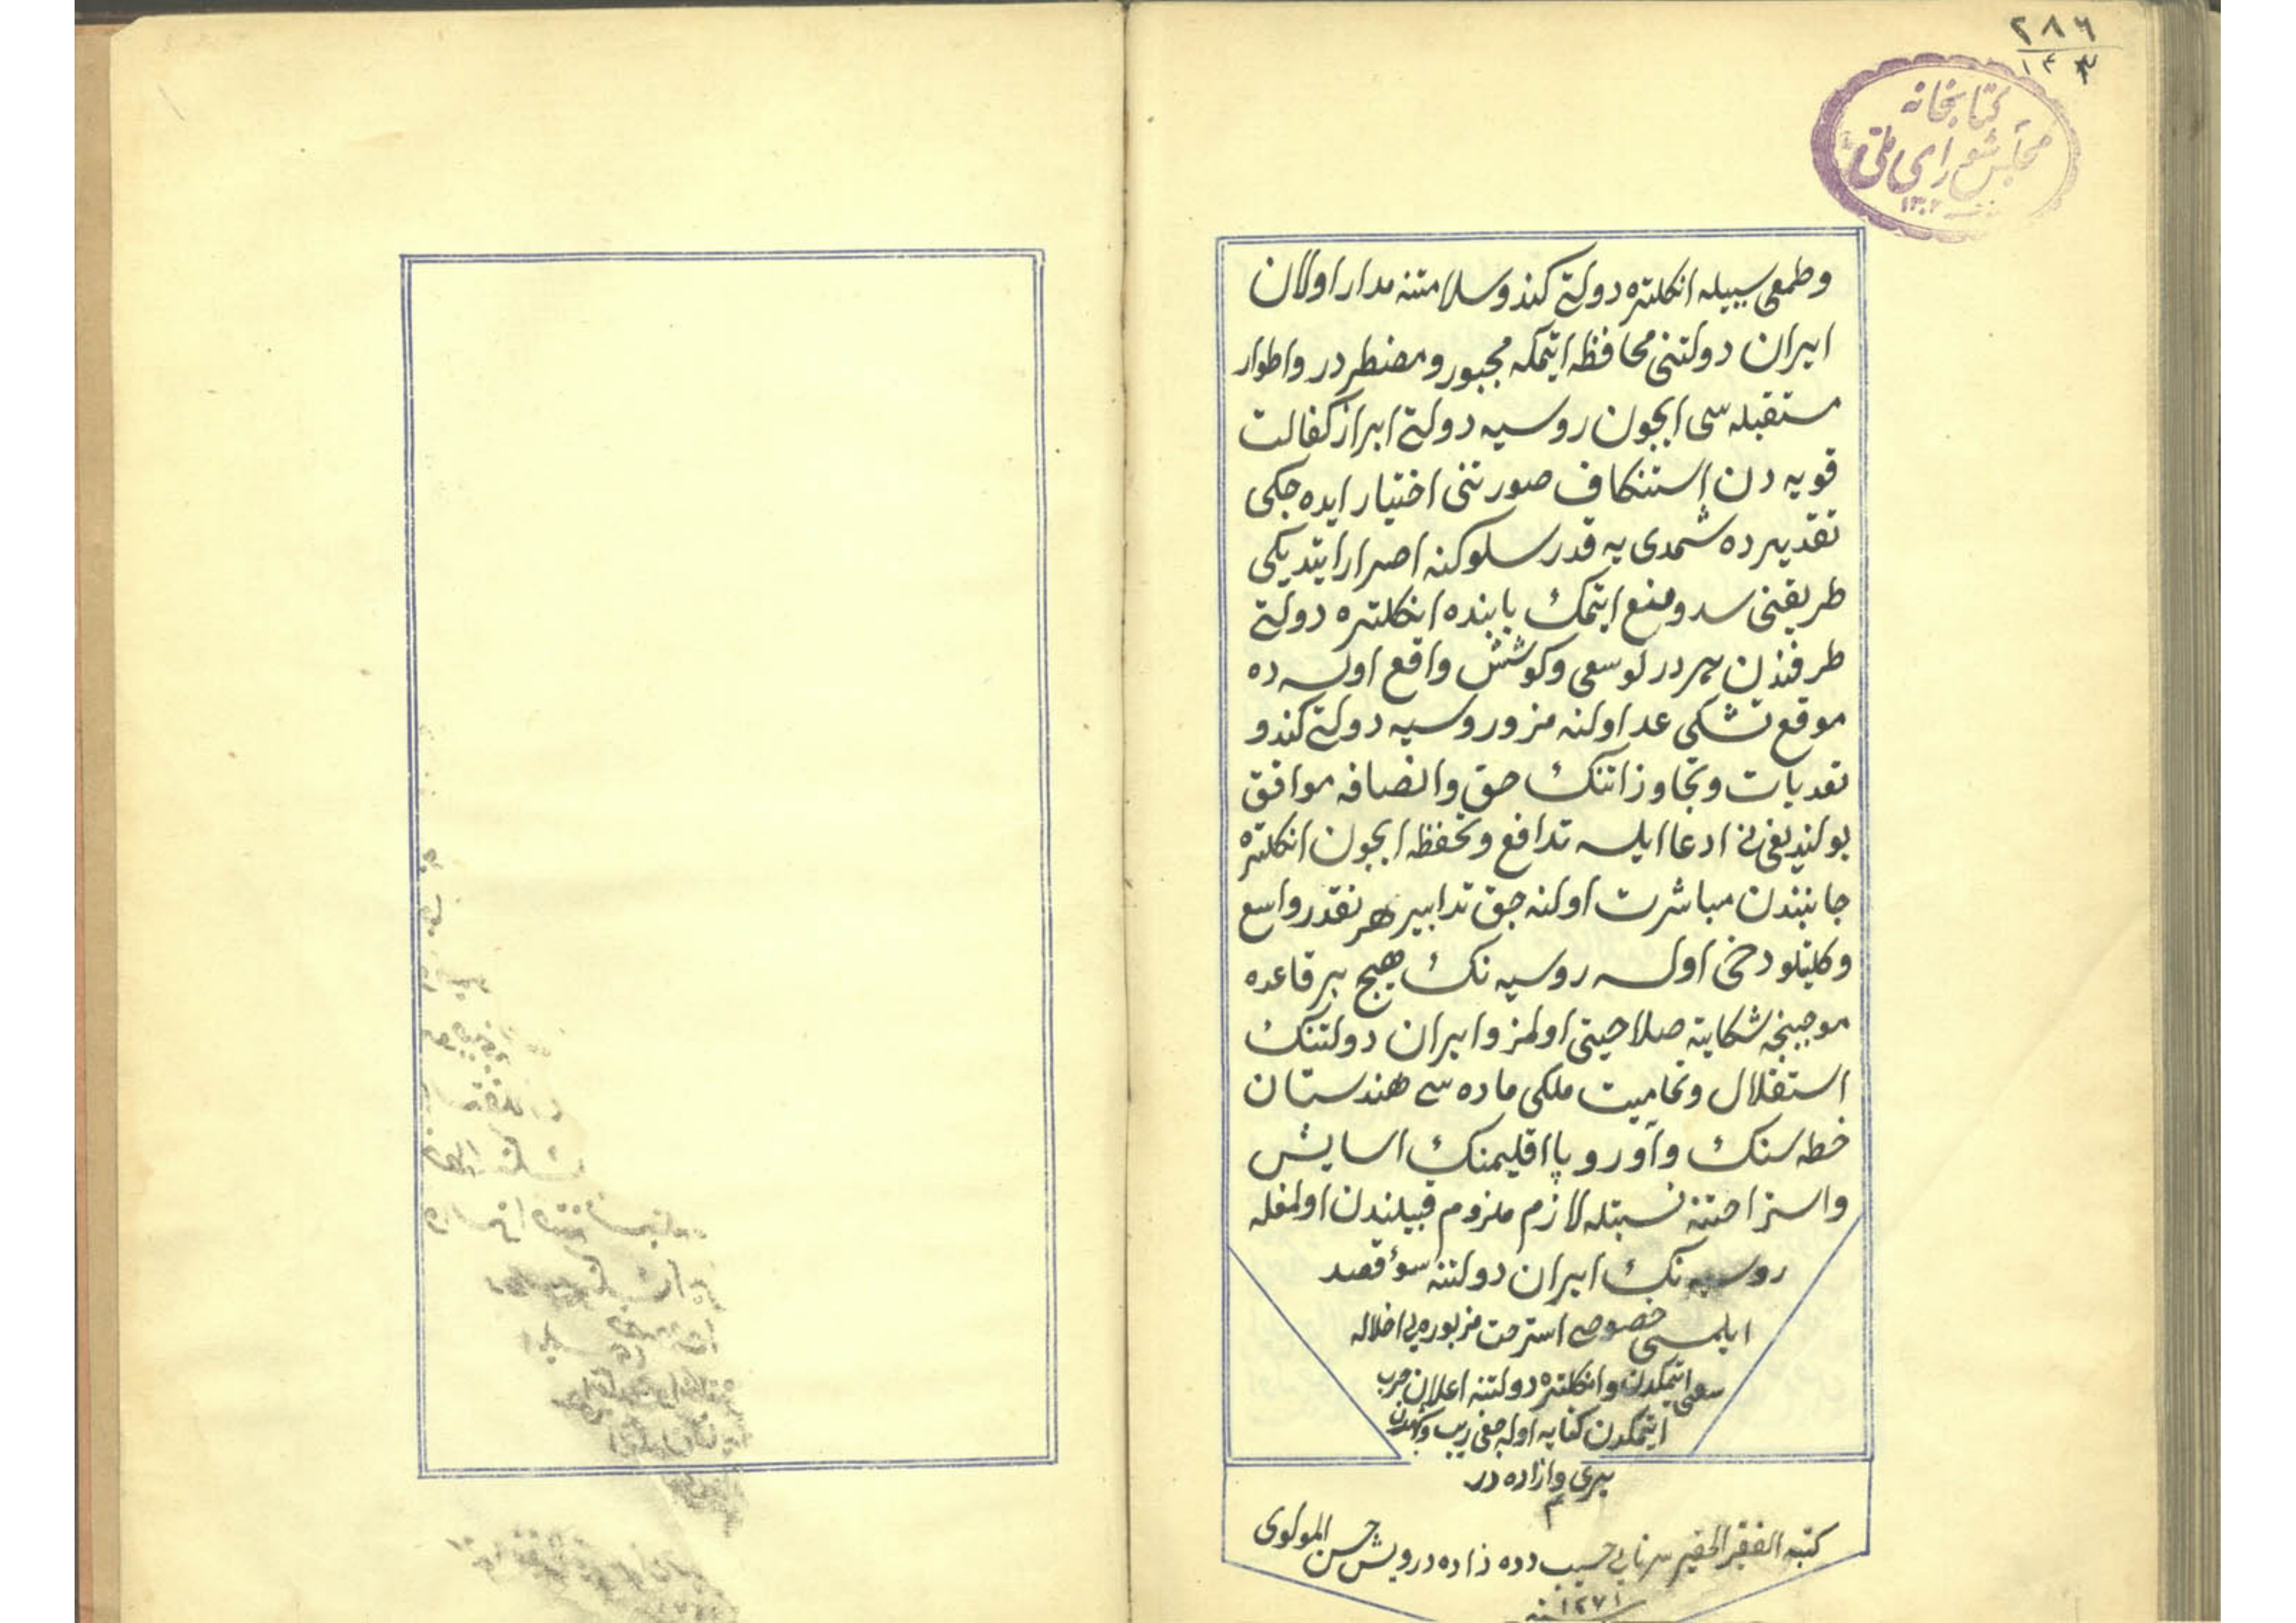 ٢٨٦
١٤٣
كتابخانه
مجلس شورای ملی
١٣٠٢
وطمعی سببیله انکلتره دولتی کندو سلامتنه مدار اولان
ایران دولتنی محافظه ایتمکه مجبور ومضطر در واطوار
مستقبله سی ایچون روسیه دولتی ابراز کفالت
قویه دن استنکاف صورتنی اختیار ایده جکی
تقدیرده شمدی یه قدر سلوکنه اصرار ایتدیکی
طریقنی سد ومنع ایتمک بابنده انکلتره دولتی
طرفندن هر درلو سعی وکوشش واقع اولسه ده
موقع تشکی عد اولنه مز و روسیه دولتی کندو
تعدیات وتجاوزاتنک حق وانصافه موافق
بولندیغنی ادعا ایله تدافع وتحفظ ایچون انکلتره
جانبندن مباشرت اولنه جق تدابیر هر نقدر واسع
وکلیتلو دخی اولسه روسیه نک هیچ بر قاعده
موجبنجه شکایته صلاحیتی اولمز وایران دولتنک
استقلال وتمامیت ملکی ماده سی هندستان
خطه سنک وآوروپا اقلیمنک اسایش
واستراحتنه نسبتله لازم ملزوم قبیلندن اولمغله
روسیه نک ایران دولتنه سوء قصد
ایلمسی خصوصی استرحت مزبوره یی اخلاله
سعی ایتمکدن وانکلتره دولتنه اعلان حرب
ایتمکدن کنایه اوله جغی ریب وکماندن
بری وازاده در
م
کتبه الفقیر الحقیر حسیب دده زاده درویش حسن المولوی
سنه ١٢٧١